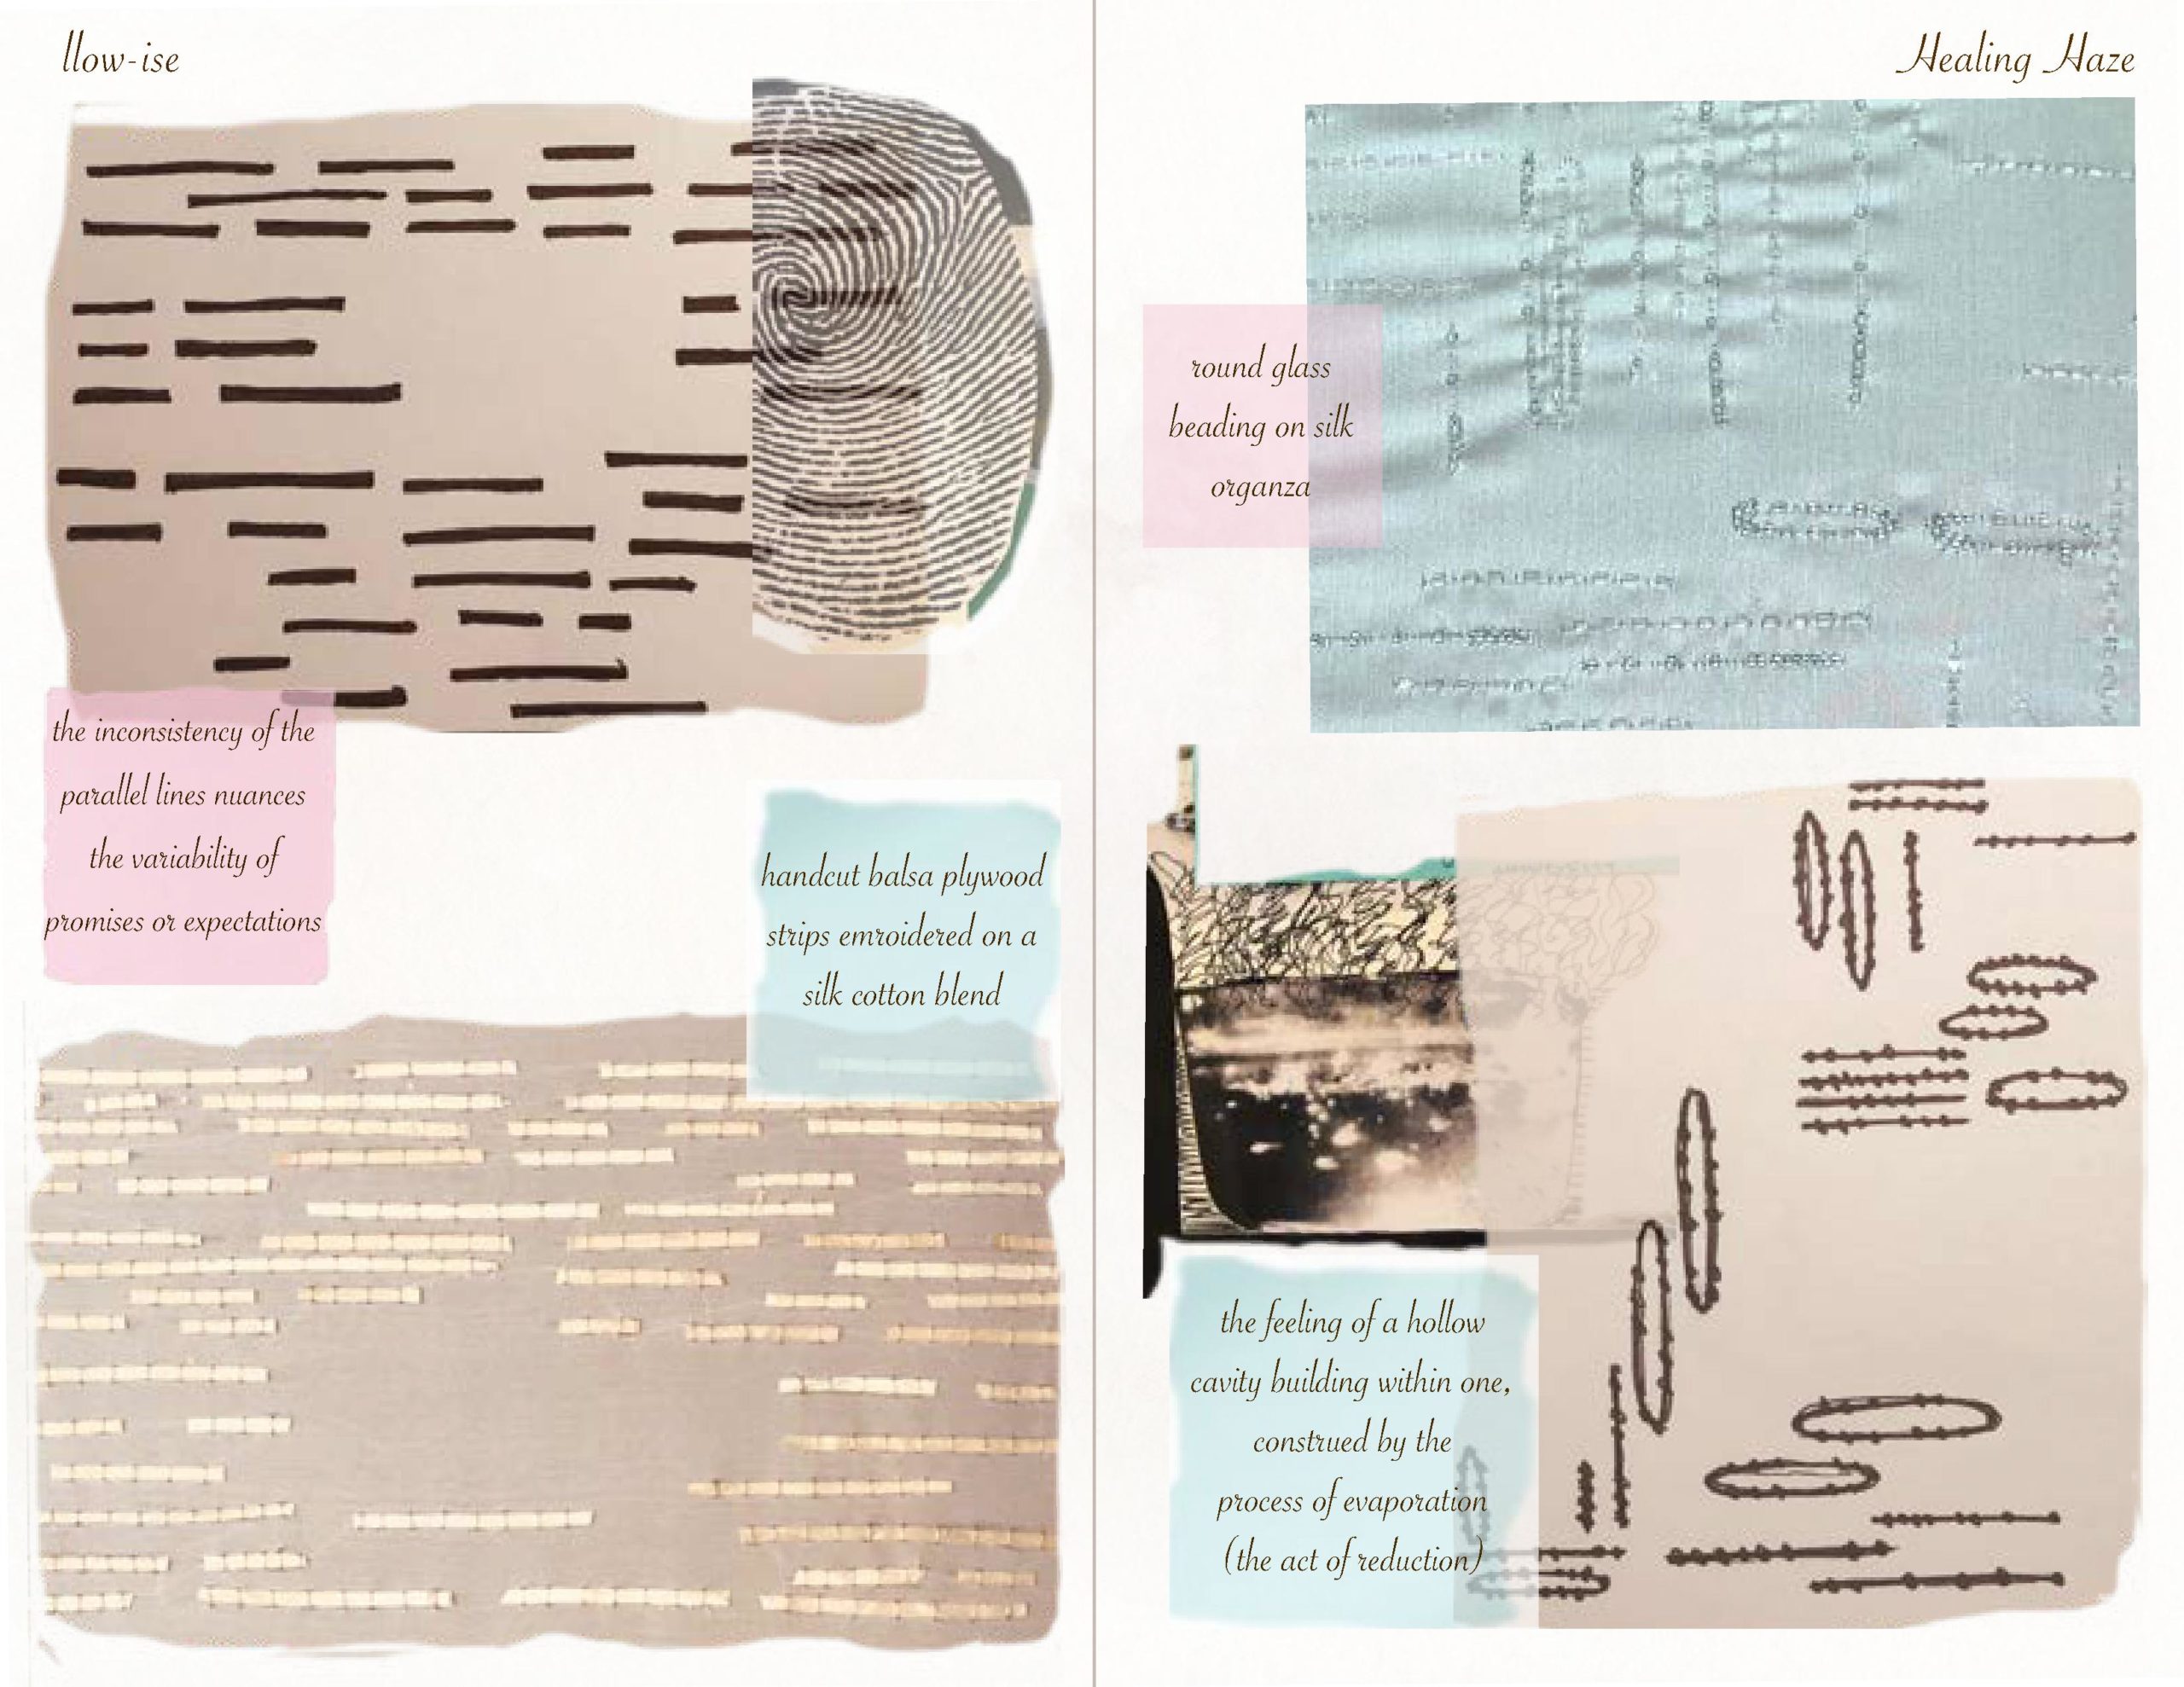 llow-ise
the inconsistency of the
parallel lines nuances
the variability of
promises or expectations
handcut balsa plywood
strips emroidered on a
silk cotton blend
Healing Haze
round glass
beading on silk
organza
the feeling of a hollow
cavity building within one,
construed by the
process of evaporation
(the act of reduction)